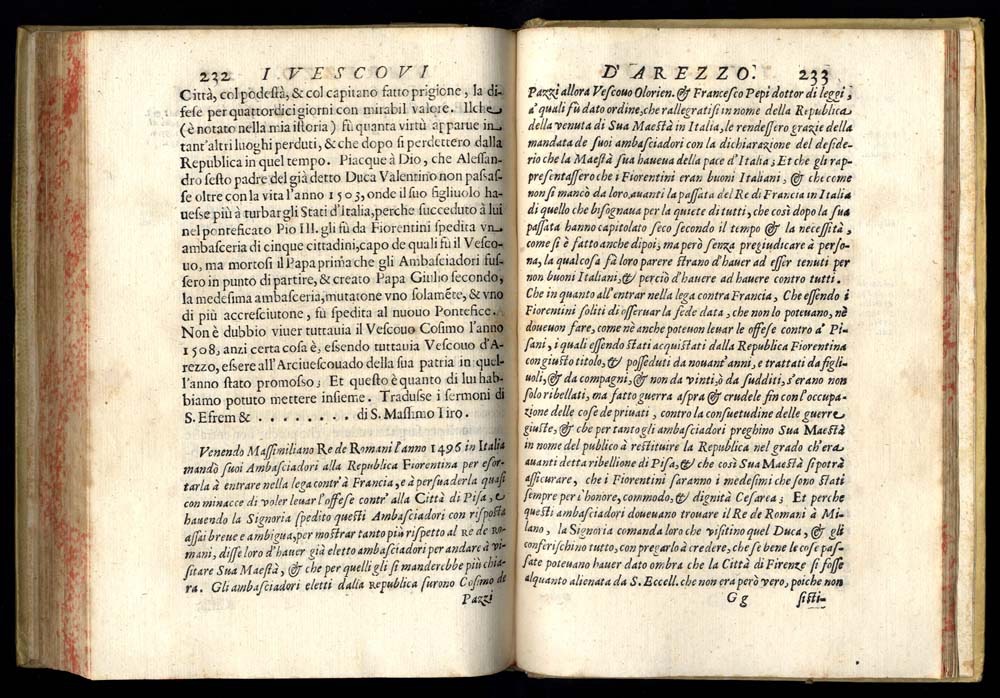 232 I VESCOVI
Città, col podestà, & col capitano fatto prigione, la di-
fese per quattordici giorni con mirabil valore. Ilche
(è notato nella mia istoria) fù quanta virtù apparue in
tant'altri luoghi perduti, & che dopo si perdettero dalla
Republica in quel tempo. Piacque à Dio, che Alessan-
dro sesto padre del già detto Duca Valentino non passas-
se oltre con la vita l'anno 1503, onde il suo figliuolo ha-
uesse più à turbar gli Stati d'Italia, perche succeduto à lui
nel ponteficato Pio III. gli fù da Fiorentini spedita vn
ambasceria di cinque cittadini, capo de quali fù il Vesco-
uo, ma mortosi il Papa prima che gli Ambasciadori fus-
sero in punto di partire, & creato Papa Giulio secondo,
la medesima ambasceria, mutatone vno solamẽte, & vno
di più accresciutone, fù spedita al nuouo Pontefice.
Non è dubbio viuer tuttauia il Vescouo Cosimo l'anno
1508, anzi certa cosa è, essendo tuttauia Vescouo d'A-
rezzo, essere all'Arciuescouado della sua patria in quel-
l'anno stato promosso; Et questo è quanto di lui hab-
biamo potuto mettere insieme. Tradusse i sermoni di
S. Efrem & . . . . . . . . di S. Massimo Tiro.
Venendo Massimiliano Re de Romani l'anno 1496 in Italia
mandò suoi Ambasciadori alla Republica Fiorentina per esor-
tarla à entrare nella lega contr'à Francia, e à persuaderla quasi
con minacce di voler leuar l'offese contr'alla Città di Pisa, e
hauendo la Signoria spedito questi Ambasciadori con risposta
assai breue e ambigua, per mostrar tanto più rispetto al Re de Ro-
mani, disse loro d'hauer già eletto ambasciadori per andare à vi-
sitare Sua Maestà, & che per quelli gli si manderebbe più chia-
ra. Gli ambasciadori eletti dalla Republica furono Cosimo de
Pazzi
D'AREZZO. 233
Pazzi allora Vescouo Olorien. & Francesco Pepi dottor di leggi,
à quali fù dato ordine, che rallegratisi in nome della Republica
della venuta di Sua Maestà in Italia, le rendessero grazie della
mandata de suoi ambasciadori con la dichiarazione del deside-
rio che la Maestà sua haueua della pace d'Italia; Et che gli rap-
presentassero che i Fiorentini eran buoni Italiani, & che come
non si mancò da loro, auanti la passata del Re di Francia in Italia
di quello che bisognaua per la quiete di tutti, che così dopo la sua
passata hanno capitolato seco secondo il tempo & la necessità,
come si è fatto anche dipoi; ma però senza pregiudicare à perso-
na, la qualcosa fà loro parere strano d'hauer ad esser tenuti per
non buoni Italiani, & perciò d'hauere ad hauere contro tutti.
Che in quanto all'entrar nella lega contra Francia, Che essendo i
Fiorentini soliti di osseruar la fede data, che non lo poteuano, nè
doueuon fare, come nè anche poteuon leuar le offese contro à Pi-
sani, i quali essendo stati acquistati dalla Republica Fiorentina
con giusto titolo, & posseduti da nouant'anni, e trattati da figli-
uoli, & da compagni, & non da vinti, ò da sudditi, s'erano non
solo ribellati, ma fatto guerra aspra & crudele fin con l'occupa-
zione delle cose de priuati, contro la consuetudine delle guerre
giuste, & che per tanto gli ambasciadori preghino Sua Maestà
in nome del publico à restituire la Republica nel grado ch'era
auanti detta ribellione di Pisa, & che così Sua Maestà si potrà
assicurare, che i Fiorentini saranno i medesimi che sono stati
sempre per l'honore, commodo, & dignità Cesarea; Et perche
questi ambasciadori doueuano trouare il Re de Romani à Mi-
lano, la Signoria comanda loro che visitino quel Duca, & gli
conferischino tutto, con pregarlo à credere, che se bene le cose pas-
sate poteuano hauer dato ombra che la Città di Firenze si fosse
alquanto alienata da S. Eccell. che non era però vero, poiche non
G g sisti-